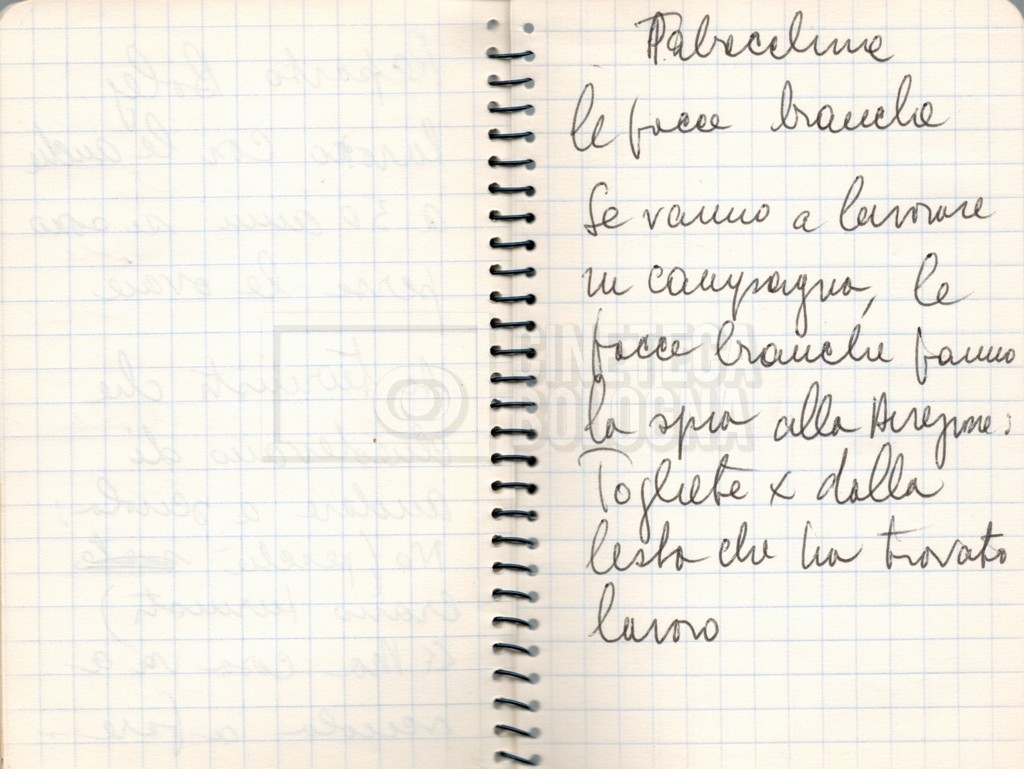 Tabacchine
le facce bianche
Se vanno a lavorare
in campagna, le
facce bianche fanno
la spia alla Direzione:
Togliete x dalla
lista che ha trovato
lavoro
CINETECA
BOLOGNA